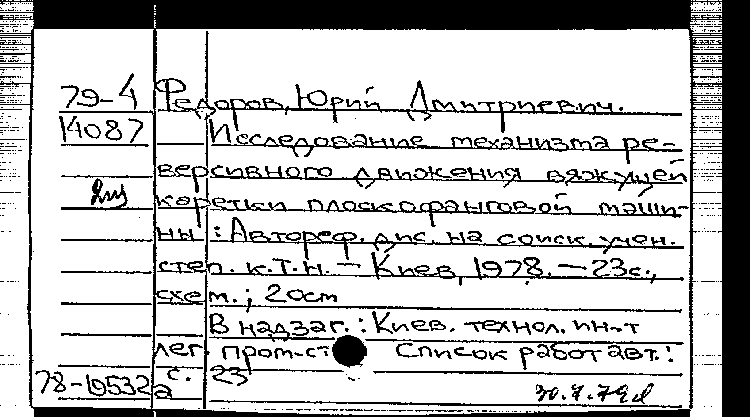 79-4 Федоров, Юрий Дмитриевич.
14087 Исследование механизма ре-
версивного движения вяжущей
каретки плоскофанговой маши-
ны : Автореф. дис. на соиск. учен.
степ. к.т.н. — Киев, 1978. — 23с.,
схем. ; 20см
В надзаг. : Киев. технол. ин-т
лег. пром-ст Список работ авт. :
с. 23
78-19532а
30.7.79